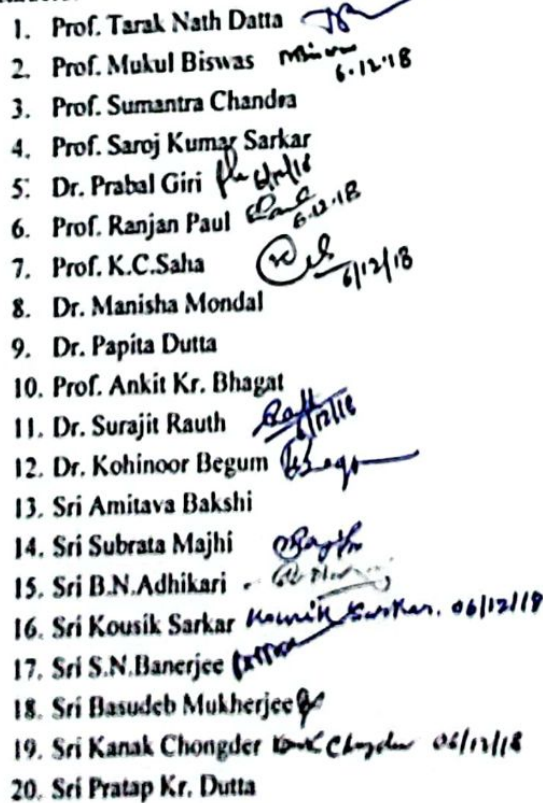 1. Prof. Tarak Nath Datta
2. Prof. Mukul Biswas 6.12.18
3. Prof. Sumantra Chandra
4. Prof. Saroj Kumar Sarkar
5. Dr. Prabal Giri
6. Prof. Ranjan Paul 6.12.18
7. Prof. K.C.Saha 6/12/18
8. Dr. Manisha Mondal
9. Dr. Papita Dutta
10. Prof. Ankit Kr. Bhagat
11. Dr. Surajit Rauth 6/12/18
12. Dr. Kohinoor Begum
13. Sri Amitava Bakshi
14. Sri Subrata Majhi
15. Sri B.N.Adhikari
16. Sri Kousik Sarkar Kousik Sarkar. 06/12/18
17. Sri S.N.Banerjee
18. Sri Basudeb Mukherjee
19. Sri Kanak Chongder 06/12/18
20. Sri Pratap Kr. Dutta